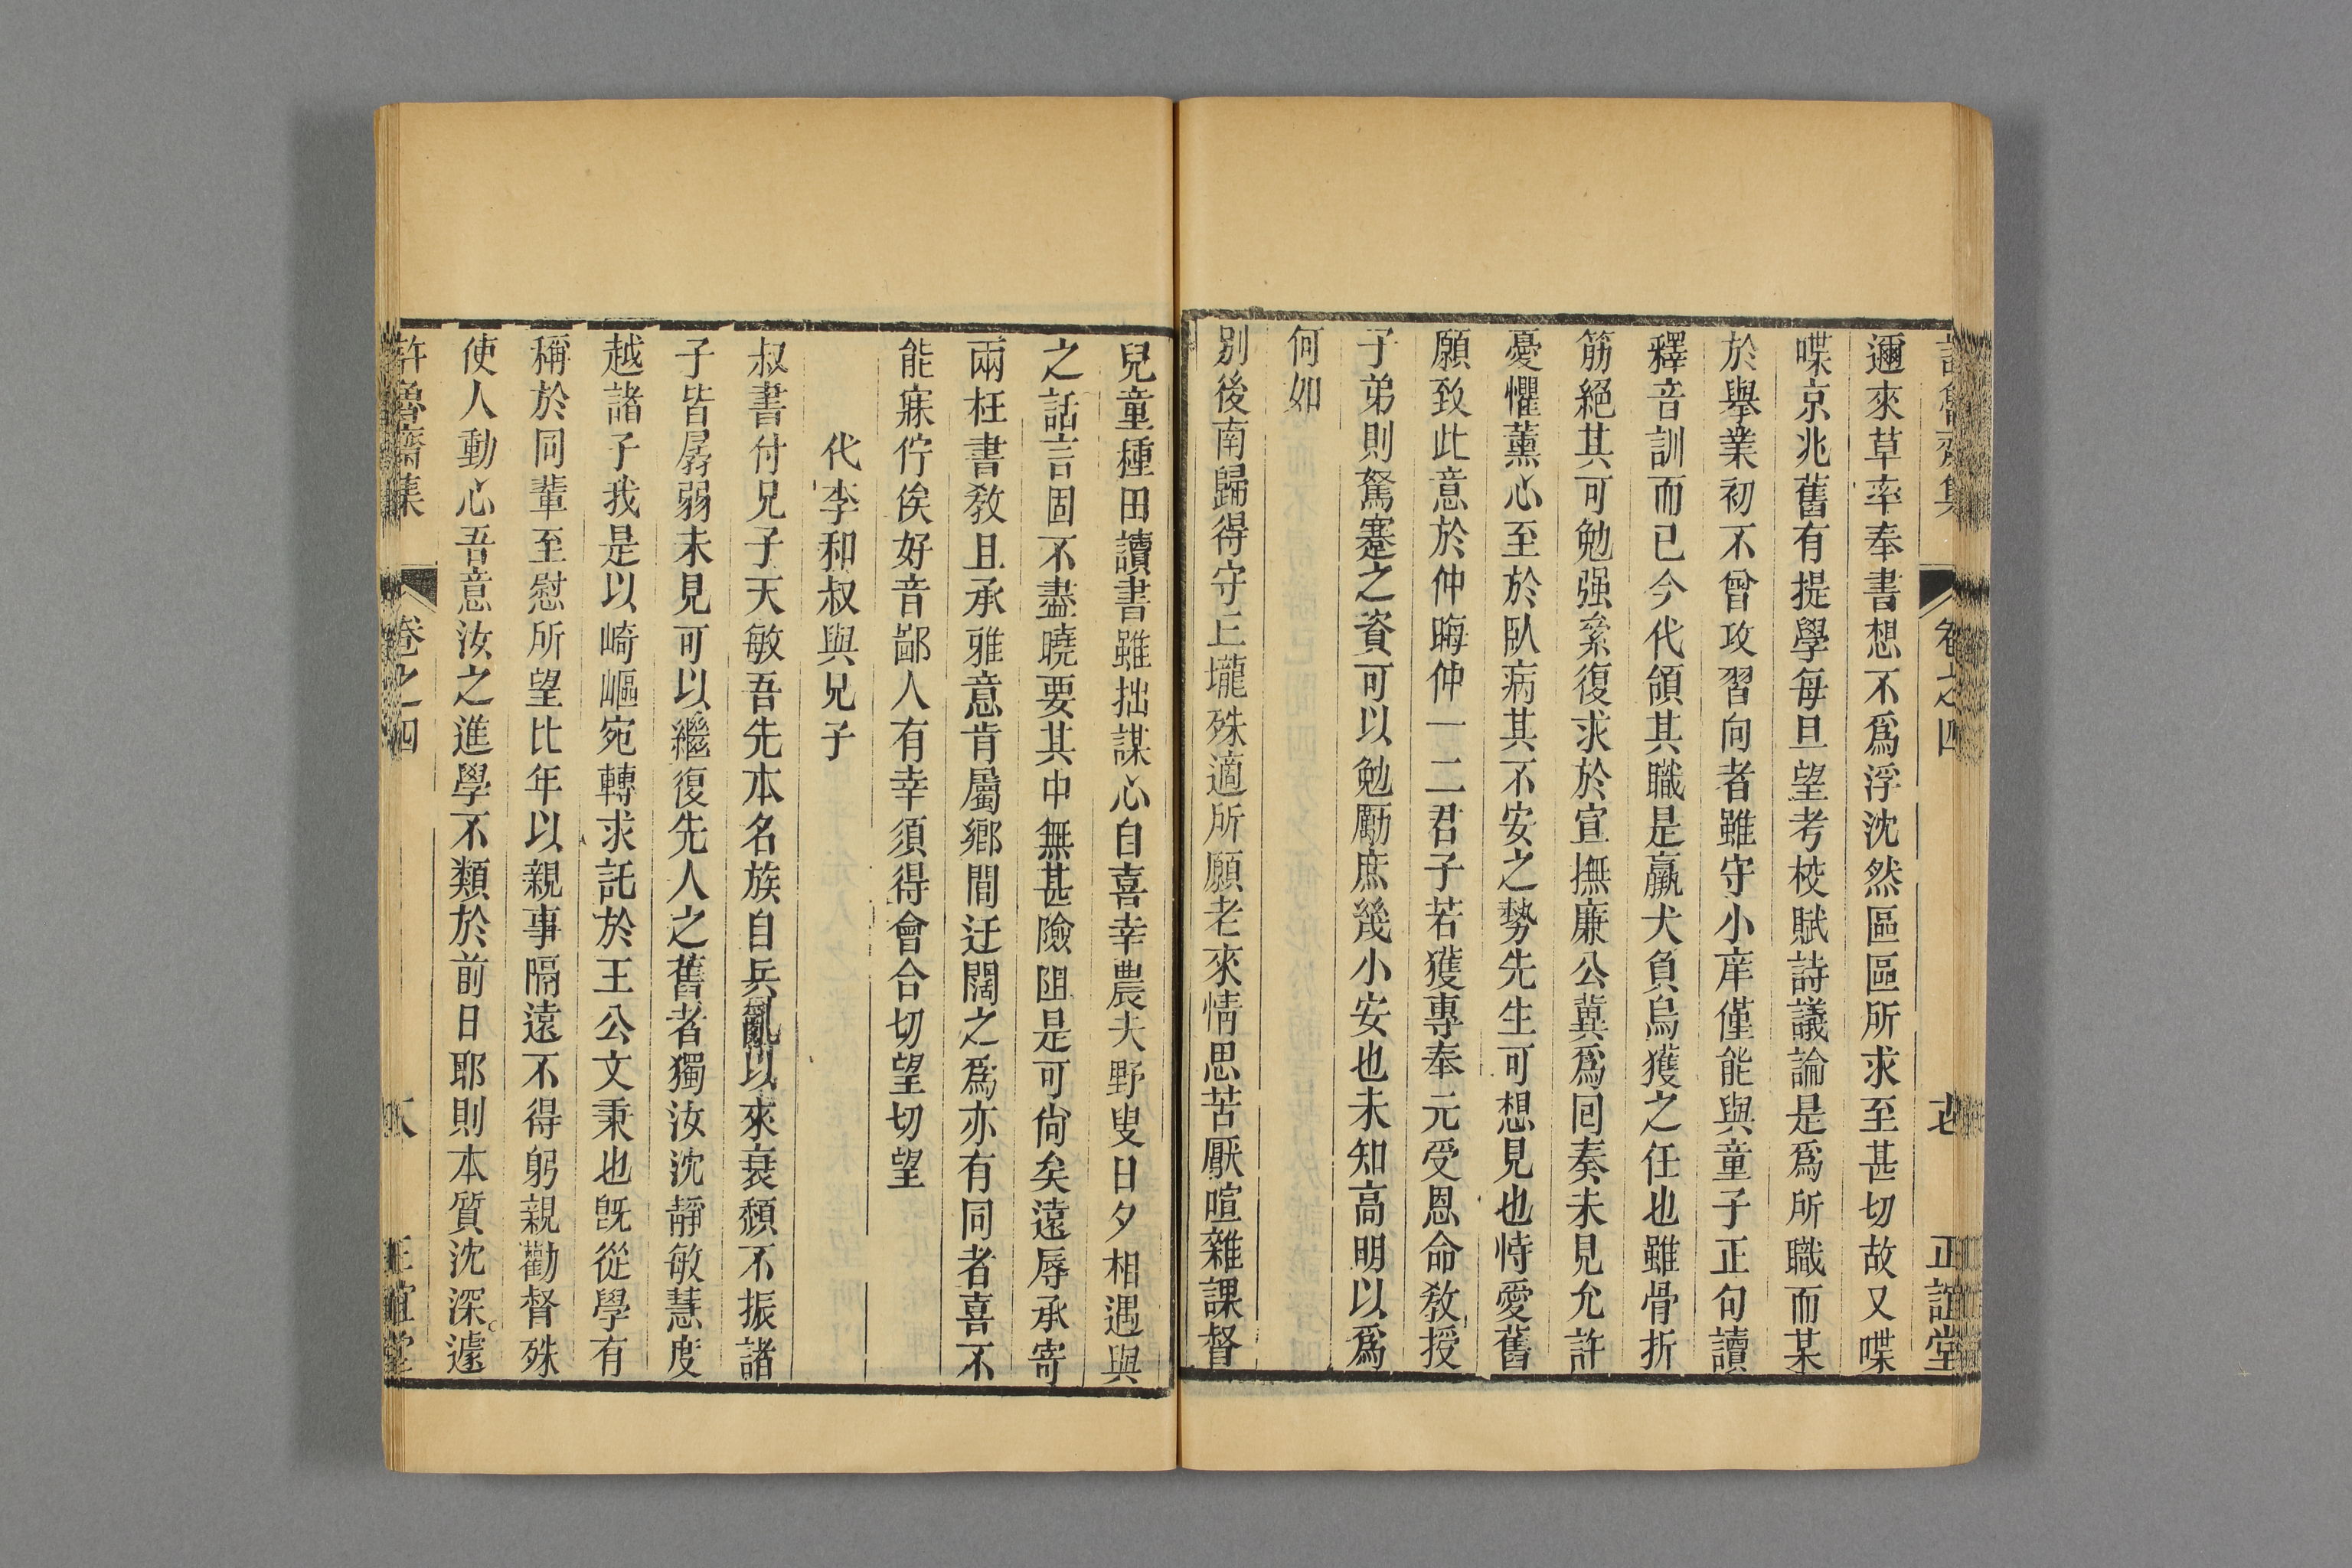 許魯齋集 卷之四 七 正誼堂
邇來草率奉書想不爲浮沈然區區所求至甚切故又喋
喋京兆舊有提學每旦望考校賦詩議論是爲所職而某
於舉業初不曾攻習向者雖守小庠僅能與童子正句讀
釋音訓而已今代領其職是羸犬負烏獲之任也雖骨折
筋絕其可勉强爲復求於宣撫廉公冀爲囘奏未見允許
憂懼薰心至於臥病其不安之勢先生可想見也恃愛舊
願致此意於仲晦仲一二君子若獲專奉元受恩命敎授
子弟則駑蹇之資可以勉勵庶幾小安也未知高明以爲
何如
別後南歸得守丘壠殊適所願老來情思苦厭喧雜課督
兒童種田讀書雖拙謀心自喜幸農夫野叟日夕相遇與
之話言固不盡曉要其中無甚險阻是可尙矣遠辱承寄
兩枉書敎且承雅意肯屬鄉閭迂闊之爲亦有同者喜不
能寐佇俟好音鄙人有幸須得會合切望切望
代李和叔與兄子
叔書付兄子天敏吾先本名族自兵亂以來衰頹不振諸
子皆孱弱未見可以繼復先人之舊者獨汝沈靜敏慧度
越諸子我是以崎嶇宛轉求託於王公文秉也旣從學有
稱於同輩至慰所望比年以親事隔遠不得躬親勸督殊
使人動心吾意汝之進學不類於前日耶則本質沈深遽
許魯齋集 卷之四 八 正誼堂